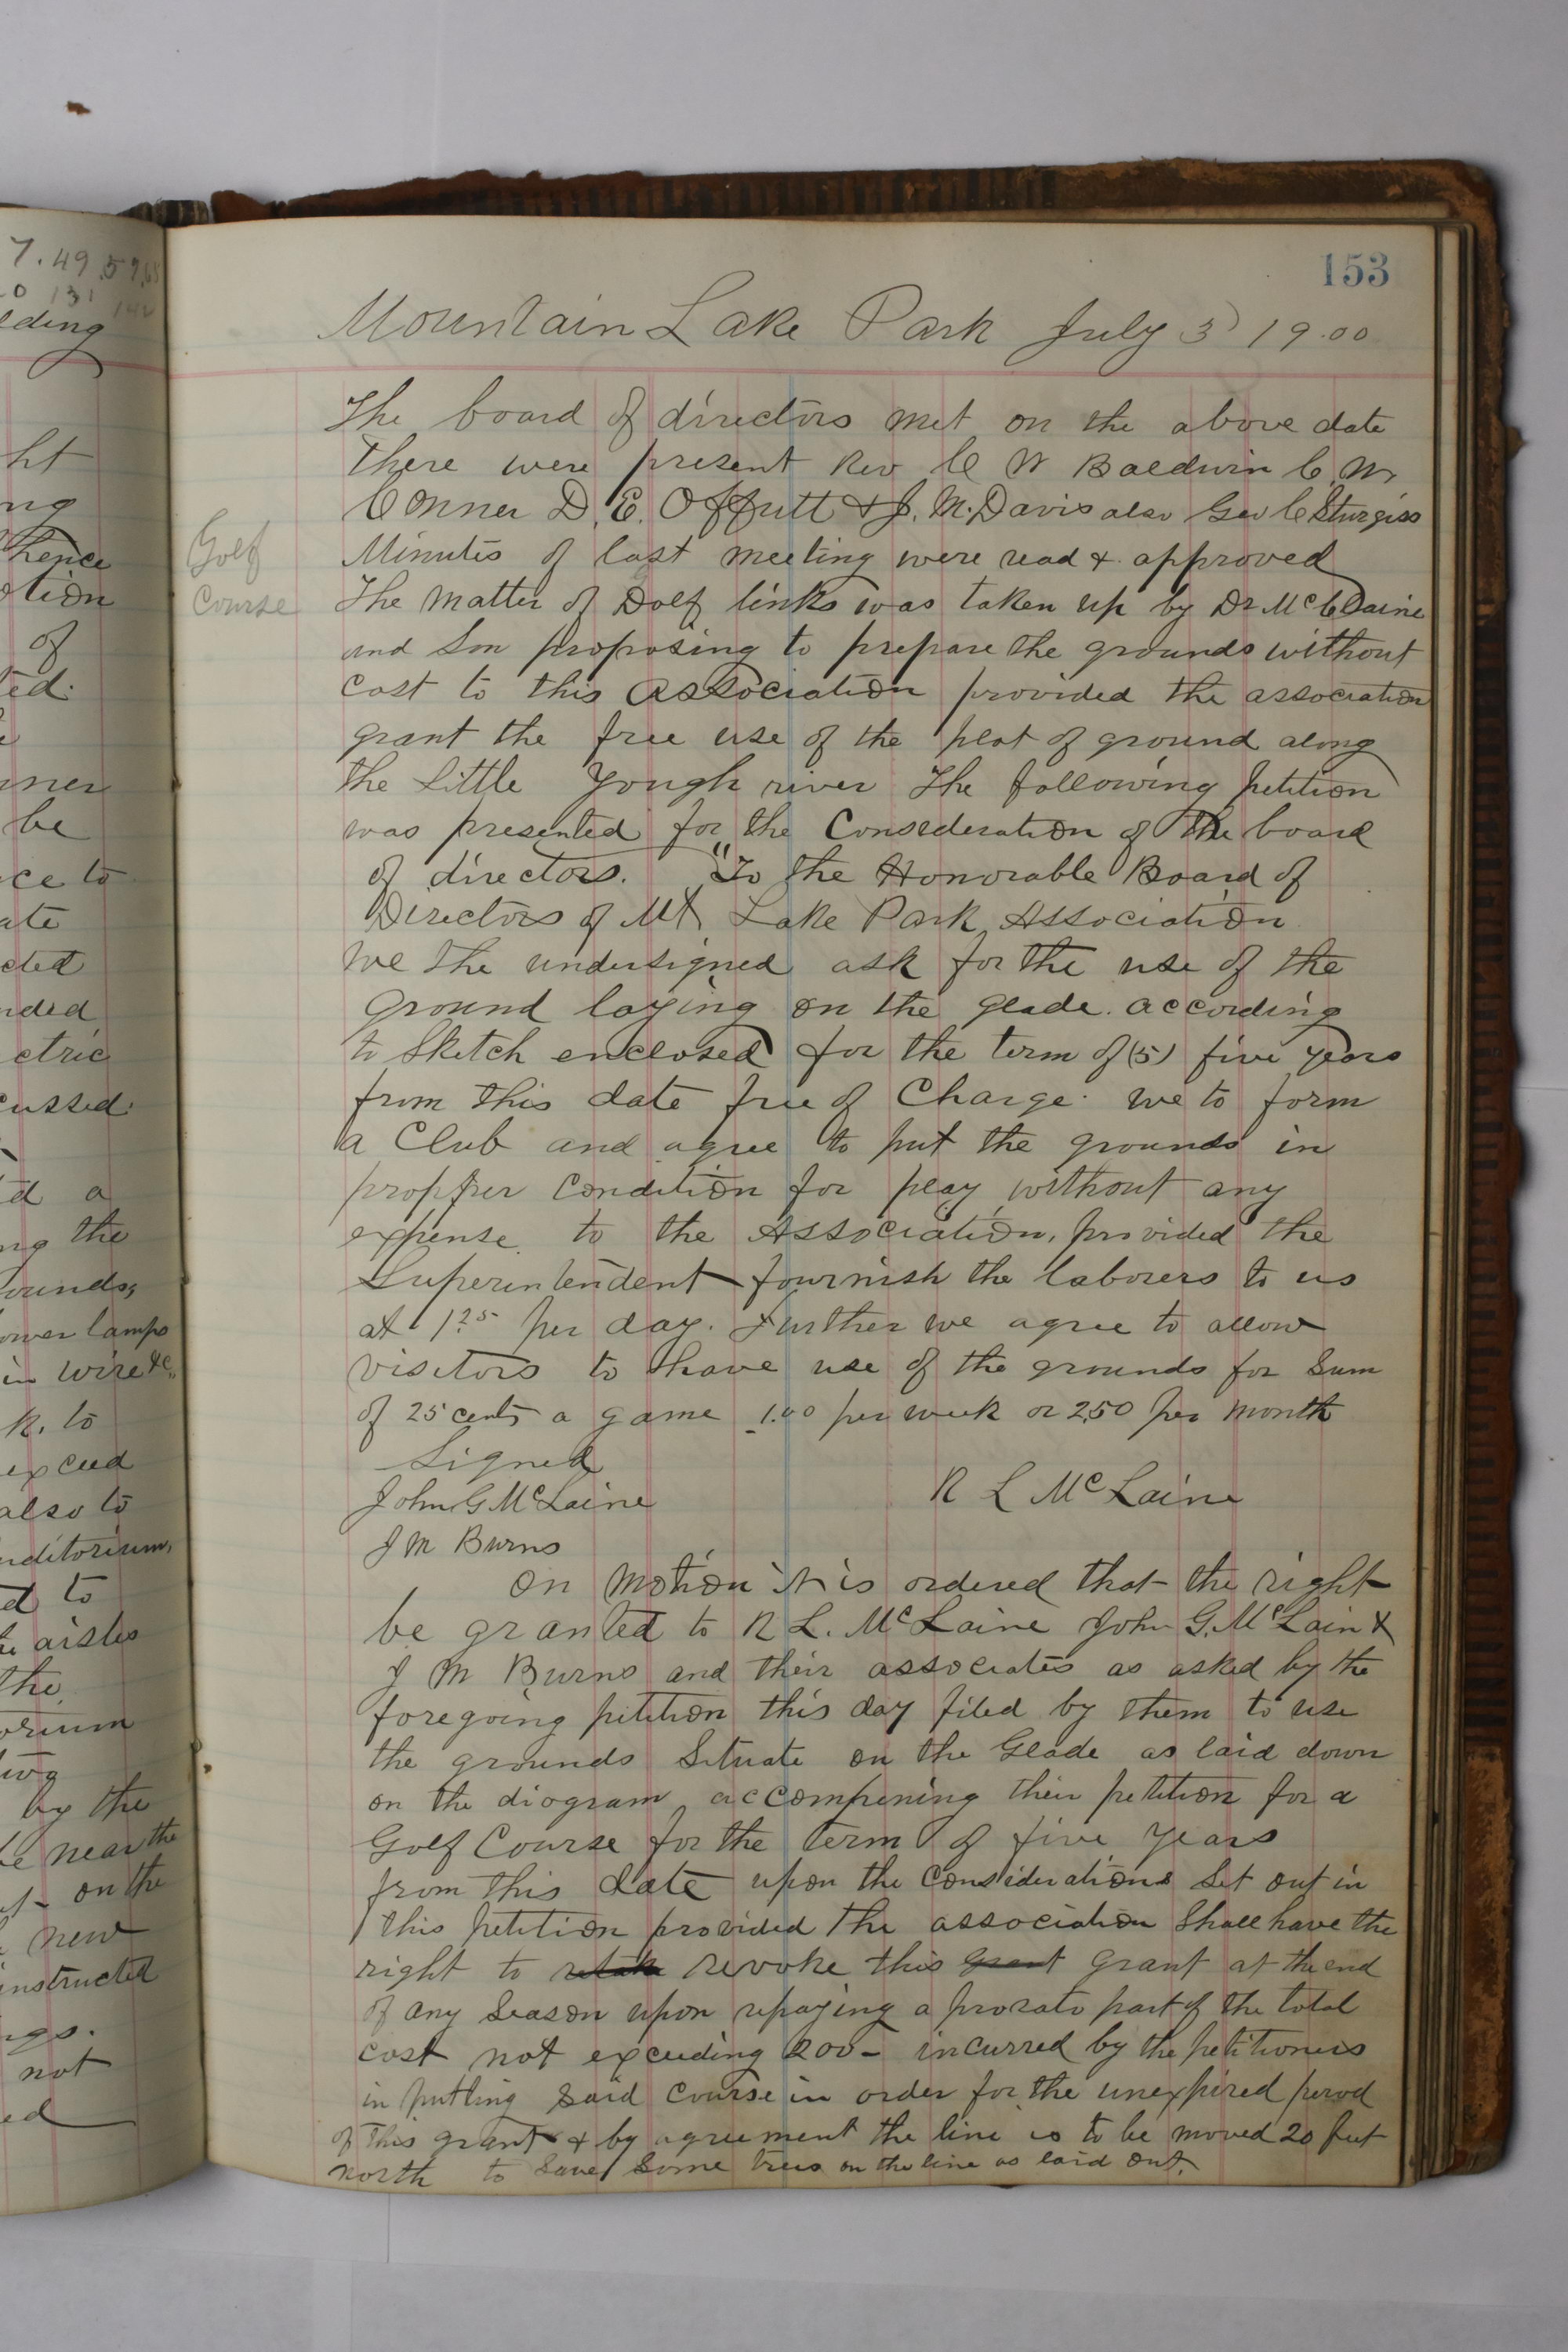 7. 49. 57, 68
131
142
lding
ht
ng
hence
otion
of
ted.
nner
be
ce to
ate
cted
nded
ctric
cussed.
d a
ng the
ounds,
ower lamps
in wire &c,
k. to
exceed
also to
uditorium,
d to
aisles
the
orium
by the
near the
on the
new
instructed
ngs.
not
ed
153
Mountain Lake Park July 3) 19.00
Golf
Course
The board of directors met on the above date
There were present Rev C W Baldwin C. W.
Conner D. E. Offutt & J. M. Davis also Geo C Sturgiss
Minutes of last meeting were read & approved
The matter of Dolf links was taken up by Dr McClaine
and Son proposing to prepare the grounds without
cost to this association provided the association
grant the free use of the plat of ground along
the Little Yough river The following petition
was presented for the Consideration of the board
of directors. "To the Honorable Board of
Directors of Mt Lake Park Association
We the undersigned ask for the use of the
ground laying on the glade. according
to Sketch enclosed for the term of (5) five years
from this date free of Charge. we to form
a Club and agree to put the grounds in
propper Condition for play without any
expense to the Association, provided the
Superintendent fournish the laborers to us
at 1.25 per day. Further we agree to allow
visitors to have use of the grounds for Sum
of 25 cents a game 1.00 per week or 2,50 per month
Signed
John G McLaine R L McLaine
J M Burns
On motion it is ordered that the right
be granted to R L. McLaine John G. McLain &
J M Burns and their associates as asked by the
foregoing petition this day filed by them to use
the grounds Situate on the Glade as laid down
on the diogram accompening their petition for a
Golf Course for the term of five years
from this date upon the Considerations Set out in
this petition provided the association Shall have the
right to retake revoke this grant grant at the end
of any Season upon repaying a prorato part of the total
cost not exceeding 200- incurred by the petitioners
in putting Said Course in order for the unexpired perod
of this grant & by agreement the line is to be moved 20 feet
north to Save Some trees on the line as laid out.